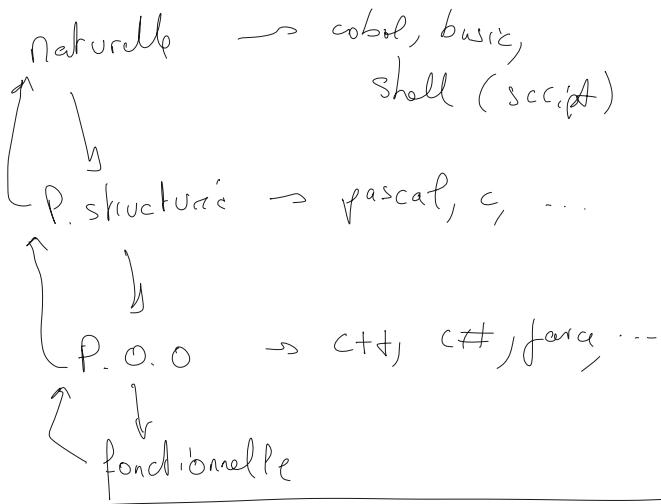 naturelle → cobol, basic,
shell (script)
P. structurée → pascal, c, ...
P.O.O → c++, c#, java, ...
fonctionnelle